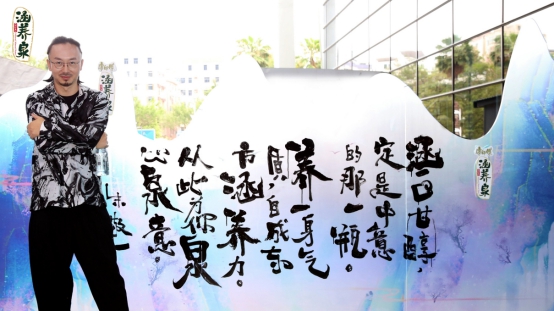 涵养泉
涵养泉
涵一口甘醇,
定是中意
的那一瓶。
养一身气
质,自成东
方涵养力。
从此有你泉
心泉意。
朱敬一
康师傅
涵养泉